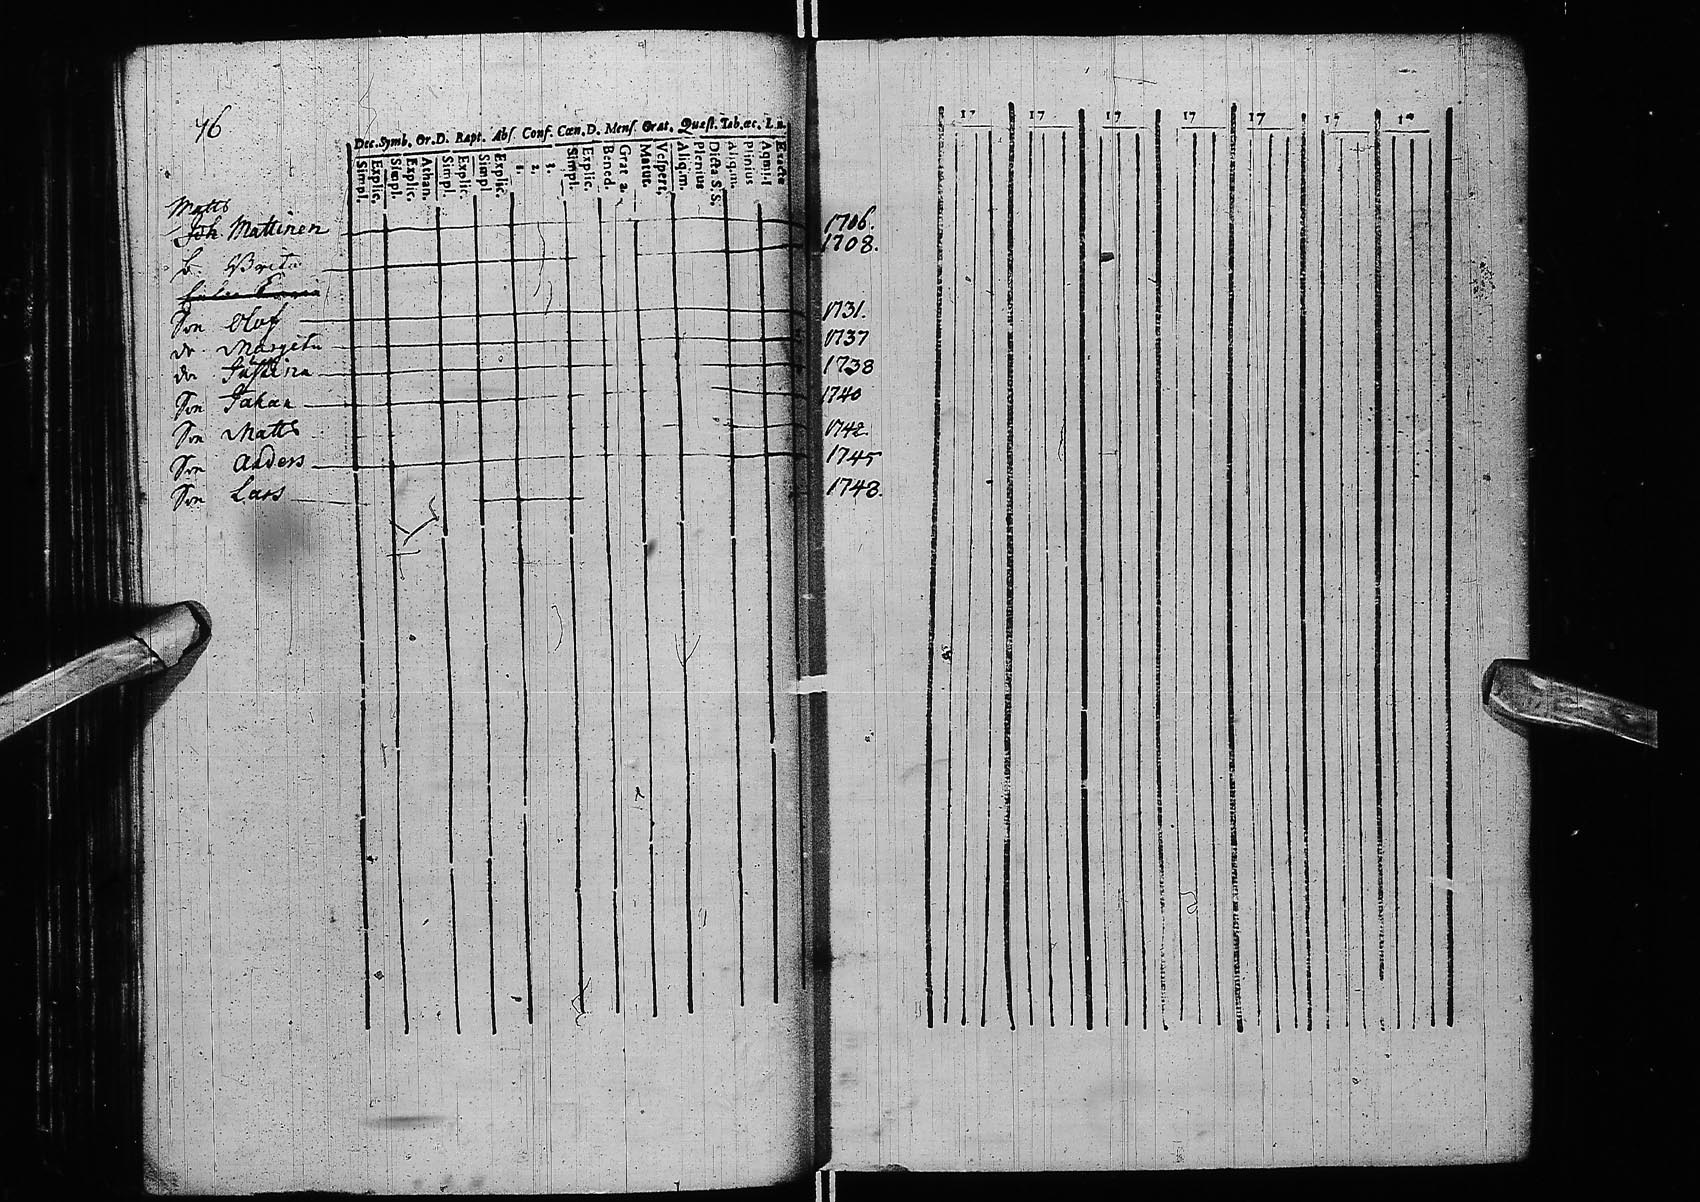 46
Dec. Symb. Or. D. Bapt. Abſ Conf. Cœn. D. Menſ. Grat. Quæſt. Tab. æc. L. n.
Simpl. Explic. Simpl. Explic. Athan. Simpl. Explic. Simpl Explic. 1. 2. 3. Simpl. Explic. Bened. Grat. a. Matut. Veſpert. Aliq. m. Plenius Dicta S. S. Aliq. m. Plinius Aq. m. Exacte
17 17 17 17 17 17 17
Matts
Joh Mattinen 1706.
h. Brita 1708.
Son Oluf 1731.
dr. Margeta 1737
dr Justina 1738
Son Johan 1740
Son Matts 1742.
Son Anders 1745
Son Lars 1748.